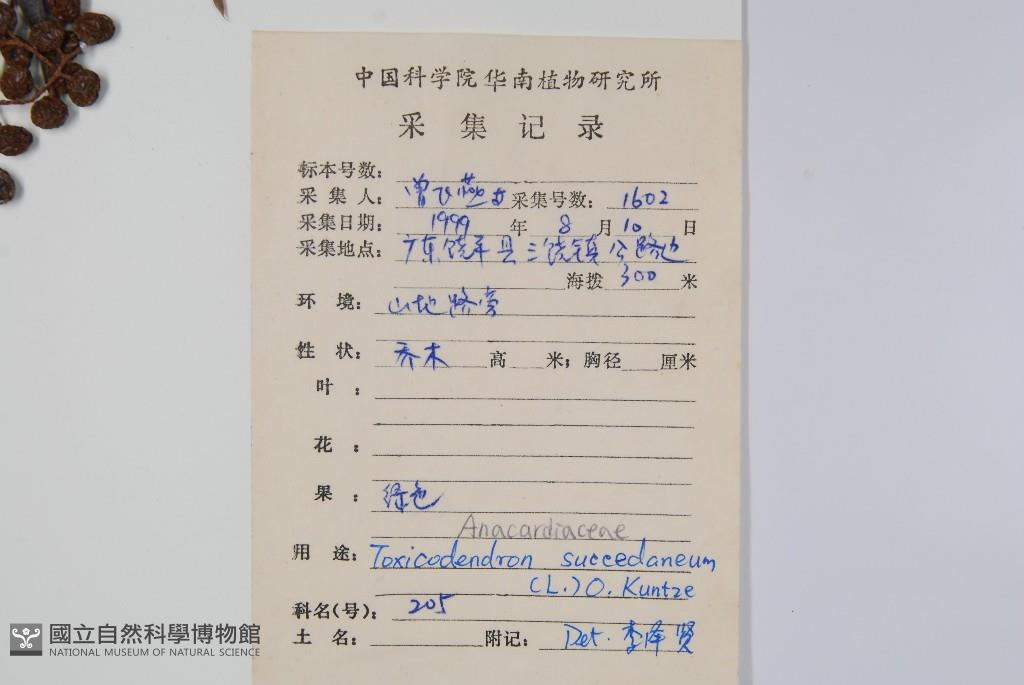 中国科学院华南植物研究所
采集记录
标本号数：
采集人：曾飞燕 采集号数：1602
采集日期：1999年8月10日
采集地点：广东饶平县三饶镇公路边
海拨300米
环境：山地路旁
性状：乔木 高 米；胸径 厘米
叶：
花：
果：绿色
Anacardiaceae
用途：Toxicodendron succedaneum
(L.) O. Kuntze
科名(号)：205
土名： 附记：Det. 李泽贤
國立自然科學博物館
NATIONAL MUSEUM OF NATURAL SCIENCE